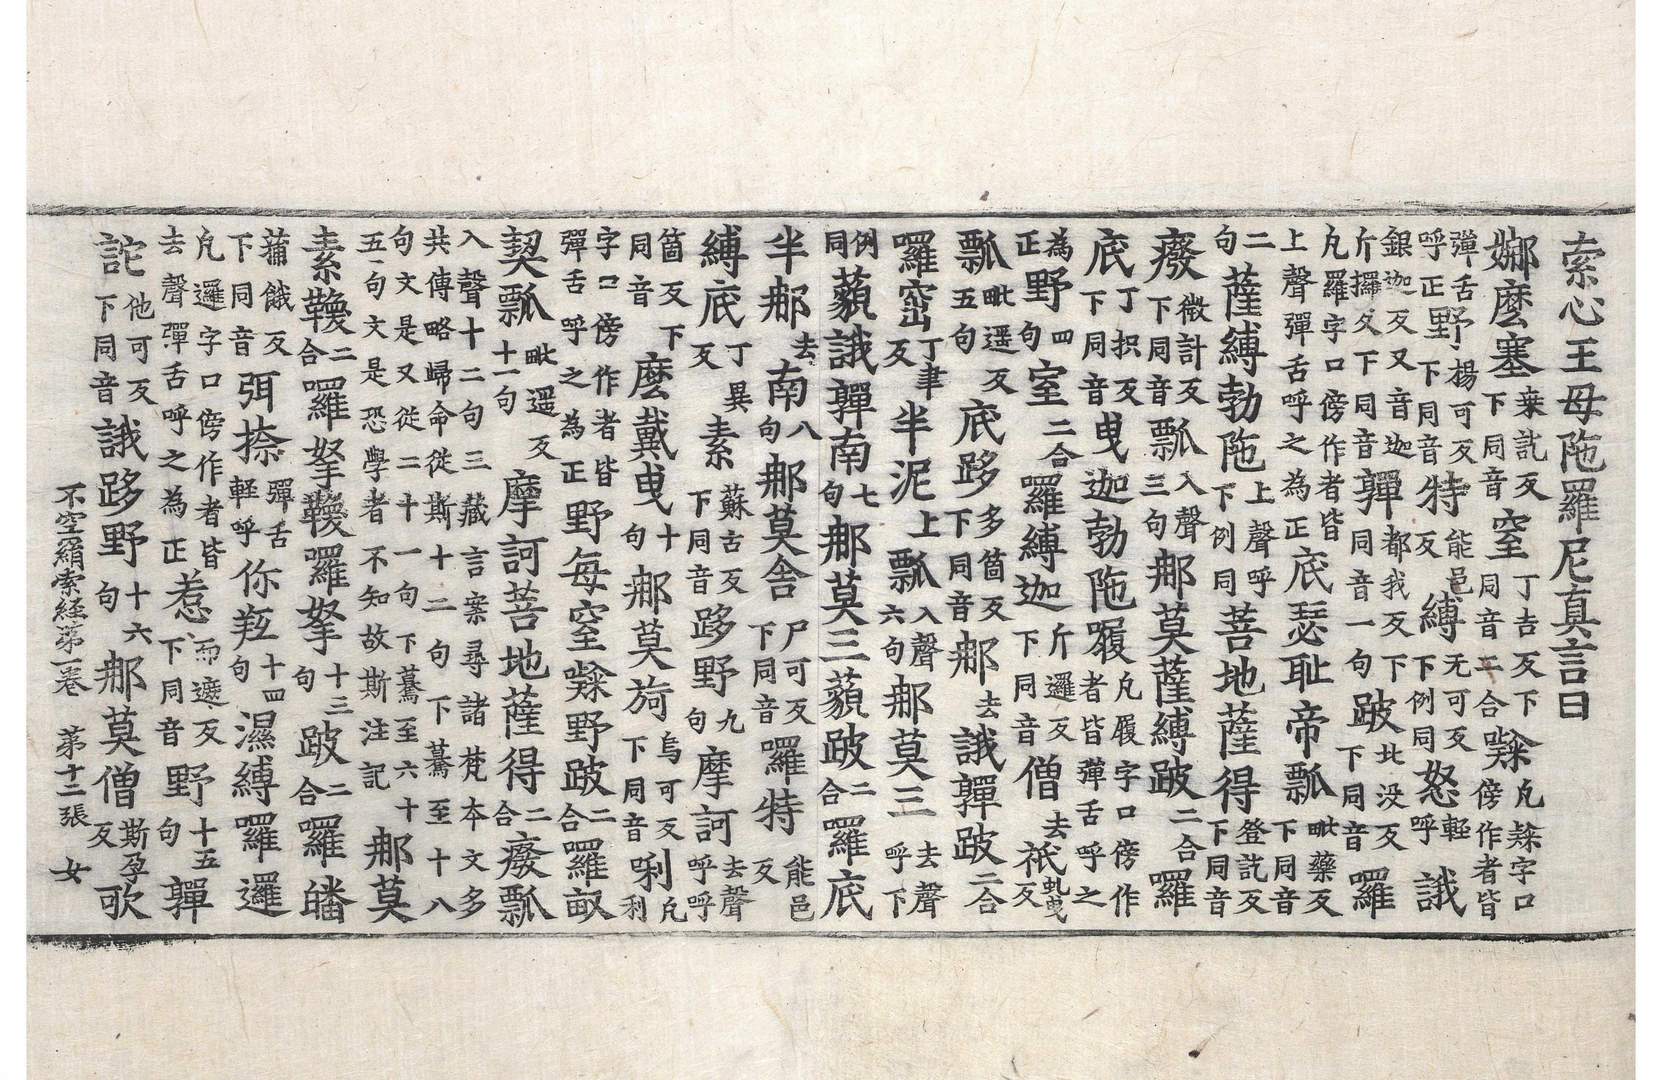 索心王母陁羅尼真言曰
娜麽塞桒訖反下同音窒丁吉反下同音二合㘑凡㘑字口傍作者皆
彈舌呼正野楊可反下同音特能邑反縛无可反下例同怒輕呼誐
銀迦反又音迦斤攞反下同音嚲都我反下同音一句跛北没反下同音羅
凡羅字口傍作者皆上聲彈舌呼之為正底瑟耻帝瓢毗藥反下同音
二句薩縛勃陁上聲呼下例同菩地薩得登訖反下同音
廢微計反下同音瓢入聲三句那莫薩縛跛二合囉
底丁抧反下同音曳迦勃陁履凡履字口傍作者皆彈舌呼之
為正野四句室二合囉縛迦斤邏反下同音僧去祇虬曳反
瓢毗遥反五句底跢多箇反下同音那去誐嚲跛二合
囉窋丁聿反半泥上瓢入聲六句那莫三去聲呼下
例同藐誐嚲南七句那莫三藐跛二合囉底
半那去南八句那莫舍尸可反下同音囉特能邑反
縛底丁異反素蘇古反下同音跢野九句摩訶去聲呼呼
箇反下同音麽戴曳十句那莫旖烏可反下同音唎凡利
字口傍作者皆彈舌呼之為正野每窒㘑野跛二合囉敢
契瓢毗遥反十一句摩訶菩地薩得二合廢瓢
入聲十二句三藏言案尋諸梵本文多共傳略歸命從斯十二句下驀至十八
句文是又從二十一句下驀至六十五句文是恐學者不知故斯注記那莫
素韈二合囉拏韈囉拏十三句跛二合囉皤
蒲餓反下同音弭捺彈舌輕呼你羝十四句濕縛囉邏
凡邏字口傍作者皆去聲彈舌呼之為正惹而遮反下同音野十五句嚲
詑他可反下同音誐跢野十六句那莫僧斯孕反歌
不空羂索經第一卷 第十二張 女